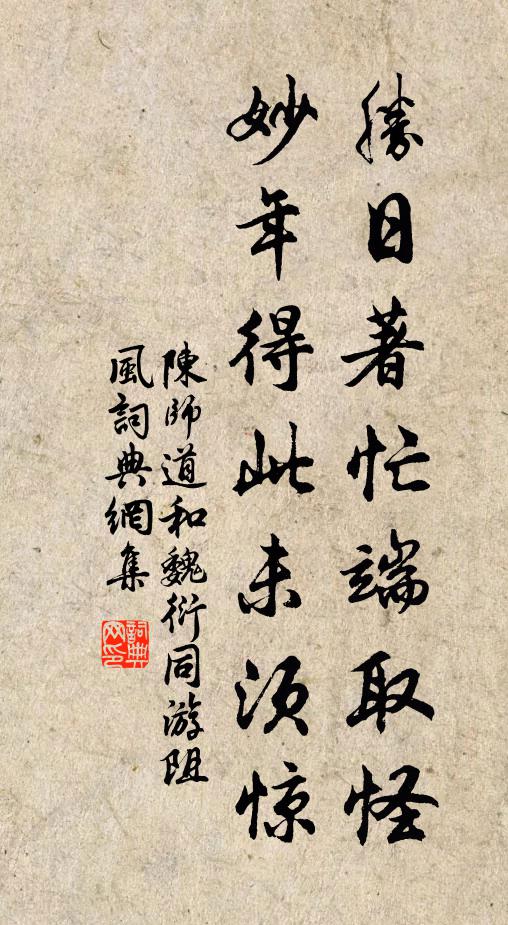 勝日著忙端取怪
妙年得此未须惊
陳師道和魏衍同游阻
風詞典網集
詞典
网印